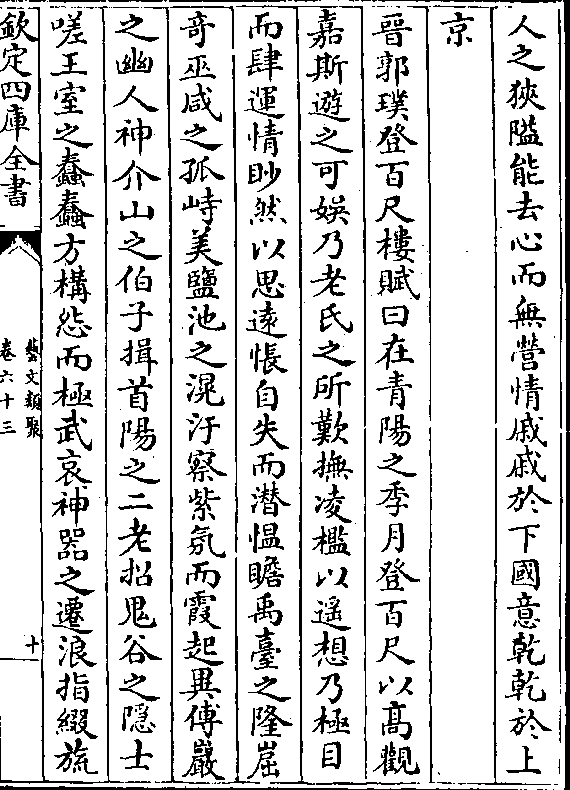 人之狹隘能去心而無營情戚戚於下國意乾乾於上
京
晉郭璞登百尺樓賦曰在青陽之季月登百尺以高觀
嘉斯遊之可娛乃老氏之所歎撫凌檻以遥想乃極目
而肆運情眇然以思遠悵自失而潛愠瞻禹臺之隆崫
奇巫咸之孤峙美鹽池之滉汙察紫氛而霞起異傅巖
之幽人神介山之伯子揖首陽之二老招鬼谷之隱士
嗟王室之蠢蠢方構怨而極武哀神器之遷浪指綴旒
欽定四庫全書
藝文類聚
卷六十三
十